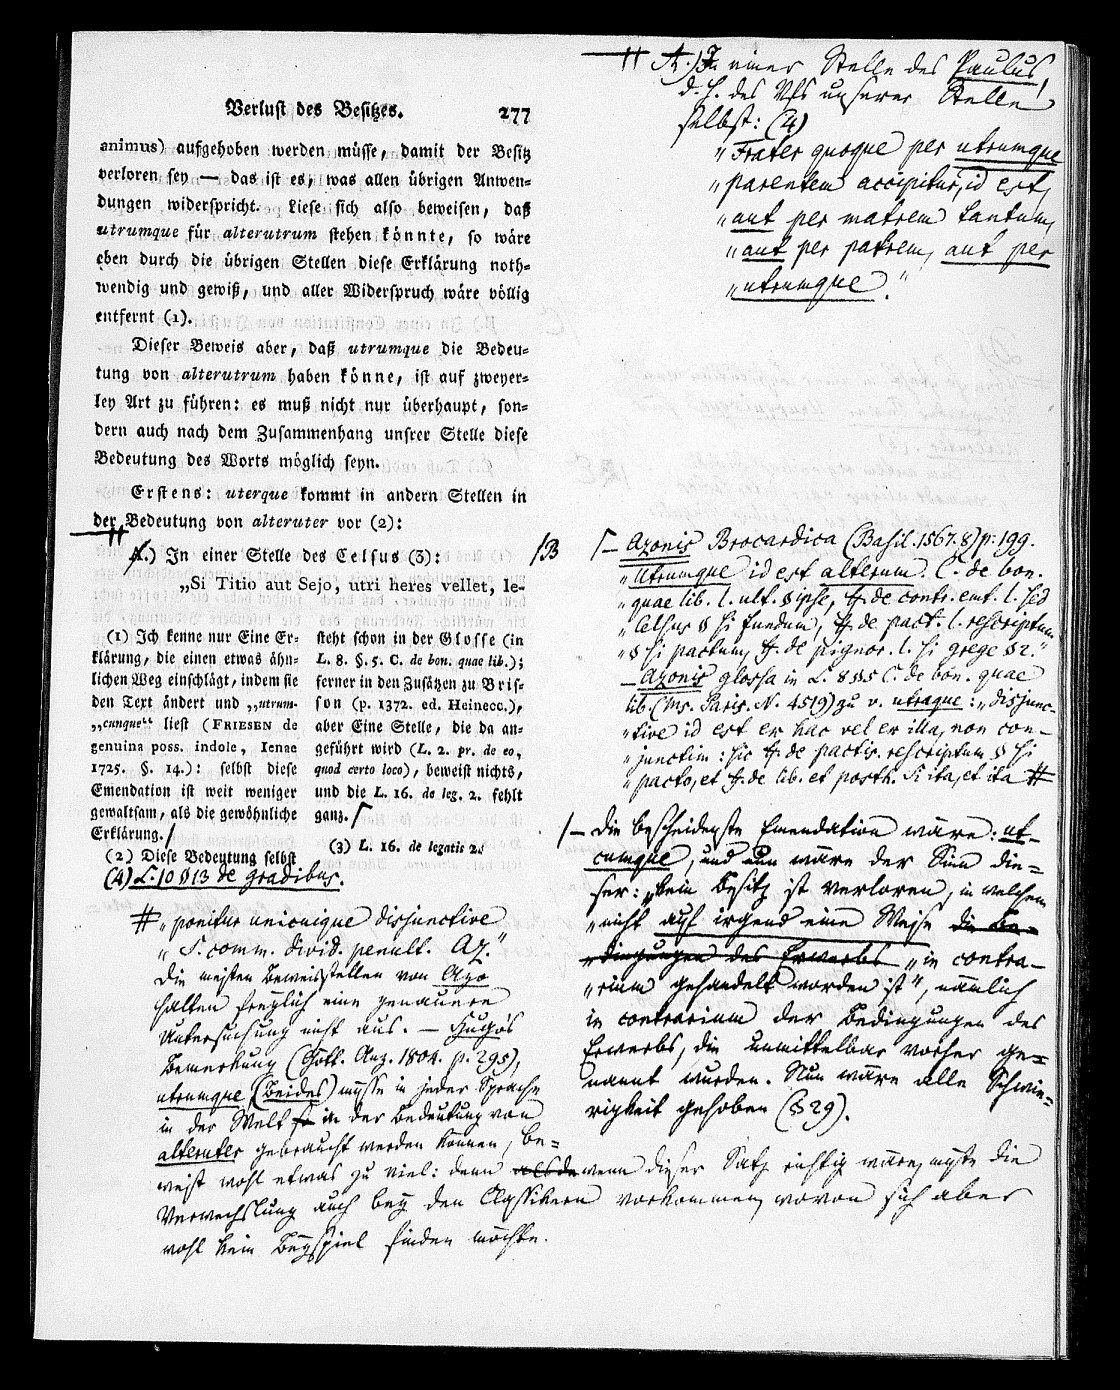 Verlust des Besitzes. 277
animus) aufgehoben werden müsse, damit der Besitz
verloren sey — das ist es, was allen übrigen Anwen-
dungen widerspricht. Liese sich also beweisen, daß
utrumque für alterutrum stehen könnte, so wäre
eben durch die übrigen Stellen diese Erklärung noth-
wendig und gewiß, und aller Widerspruch wäre völlig
entfernt (1).
Dieser Beweis aber, daß utrumque die Bedeu-
tung von alterutrum haben könne, ist auf zweyer-
ley Art zu führen: es muß nicht nur überhaupt, son-
dern auch nach dem Zusammenhang unsrer Stelle diese
Bedeutung des Worts möglich seyn.
Erstens: uterque kommt in andern Stellen in
der Bedeutung von alteruter vor (2):
A.) In einer Stelle des Celsus (3):
„Si Titio aut Sejo, utri heres vellet, le-
(1) Ich kenne nur Eine Er-
klärung, die einen etwas ähn-
lichen Weg einschlägt, indem sie
den Text ändert und „utrum-
„cunque“ liest (FRIESEN de
genuina poss. indole, Ienae
1725. §. 14.): selbst diese
Emendation ist weit weniger
gewaltsam, als die gewöhnliche
Erklärung.
(2) Diese Bedeutung selbst
steht schon in der Glosse (in
L. 8. §. 5. C. de bon. quae lib.);
ferner in den Zusätzen zu Bris-
son (p. 1372. ed. Heinecc.),
aber Eine Stelle, die da an-
geführt wird (L. 2. pr. de eo,
quod certo loco), beweist nichts,
und die L. 16. de leg. 2. fehlt
ganz.
(3) L. 16. de legatis 2.
(4) L. 10 § 13 de gradibus.
A.) In einer Stelle des Paulus,
d. h. des Vfs unserer Stelle
selbst: (4)
„Frater quoque per utrumque
„parentem accipitur, id est,
„aut per matrem tantum,
„aut per patrem, aut per
„utrumque.“
B
— Azonis Brocardica (Basil. 1567. 8) p. 199.
„Utrumque id est alterum. C. de bon.
„quae lib. l. ult. § ipse, ff. de contr. emt. l. sed
„Celsus § si fundum, ff. de pact. l. rescriptum
„§ si pactum, ff. de pignor. l. si grege § 2.“
— Azonis glossa in L. 8 § 5 C. de bon. quae
lib. (Ms. Paris. N. 4519) zu v. utraque: „disjunc-
„tive id est ex hac vel ex illa, non con-
„junctim: sic ff. de pactis. rescriptum § si
„pacto, et ff. de lib. et posth. Si ita, et ita #
# „ponitur unicuique disjunctive
„S. comm. divid. penult. Az.“
Die meisten Beweisstellen von Azo
halten freylich eine genauere
Untersuchung nicht aus. — Hugo's
Bemerkung (Gött. Anz. 1804. p. 295),
utrumque (Beides) müsse in jeder Sprache
in der Welt in der Bedeutung von
alteruter gebraucht werden können, be-
weist wohl etwas zu viel: denn wenn dieser Satz richtig wäre, müßte die
Verwechslung auch bey den Classikern vorkommen, wovon sich aber
wohl kein Beyspiel finden möchte.
— Die bescheidenste Emendation wäre: ut-
cumque, und nun wäre der Sinn die-
ser: „kein Besitz ist verloren, in welchem
„nicht auf irgend eine Weise die Be-
„dingungen des Erwerbs „in contra-
„rium gehandelt worden ist“, nämlich
in contrarium der Bedingungen des
Erwerbs, die unmittelbar vorher ge-
nannt wurden. Nun wäre alle Schwie-
rigkeit gehoben (§ 29).